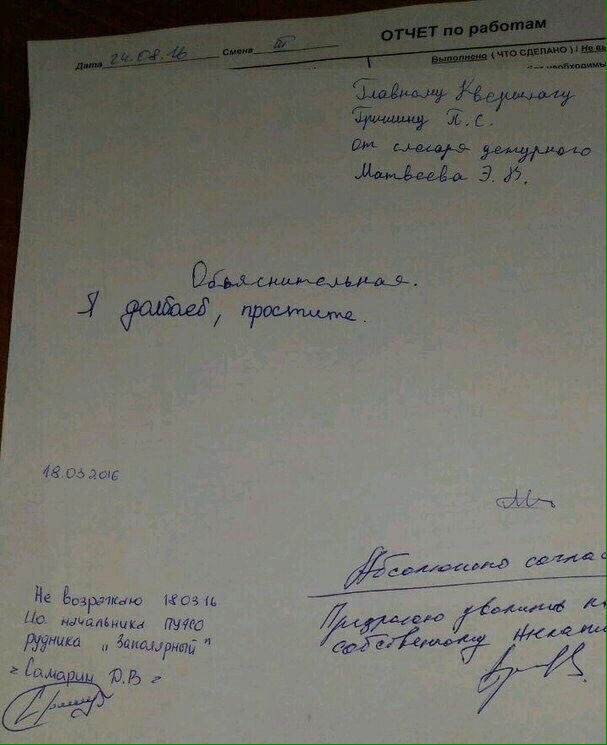 ОТЧЕТ по работам
Дата 24.08.16 Смена III
Выполнено ( ЧТО СДЕЛАНО ) / Не вы
необходимы
Главному Квершлагу
Гришину П.С.
от слесаря дежурного
Матвеева Э.В.
Объяснительная.
Я долбаеб, простите.
18.03.2016
Абсолютно соглас
Не возражаю 18.03.16
Ио. начальника
рудника „Заполярный"
Самарин Д.В
Предлагаю уволить п
собственному желани